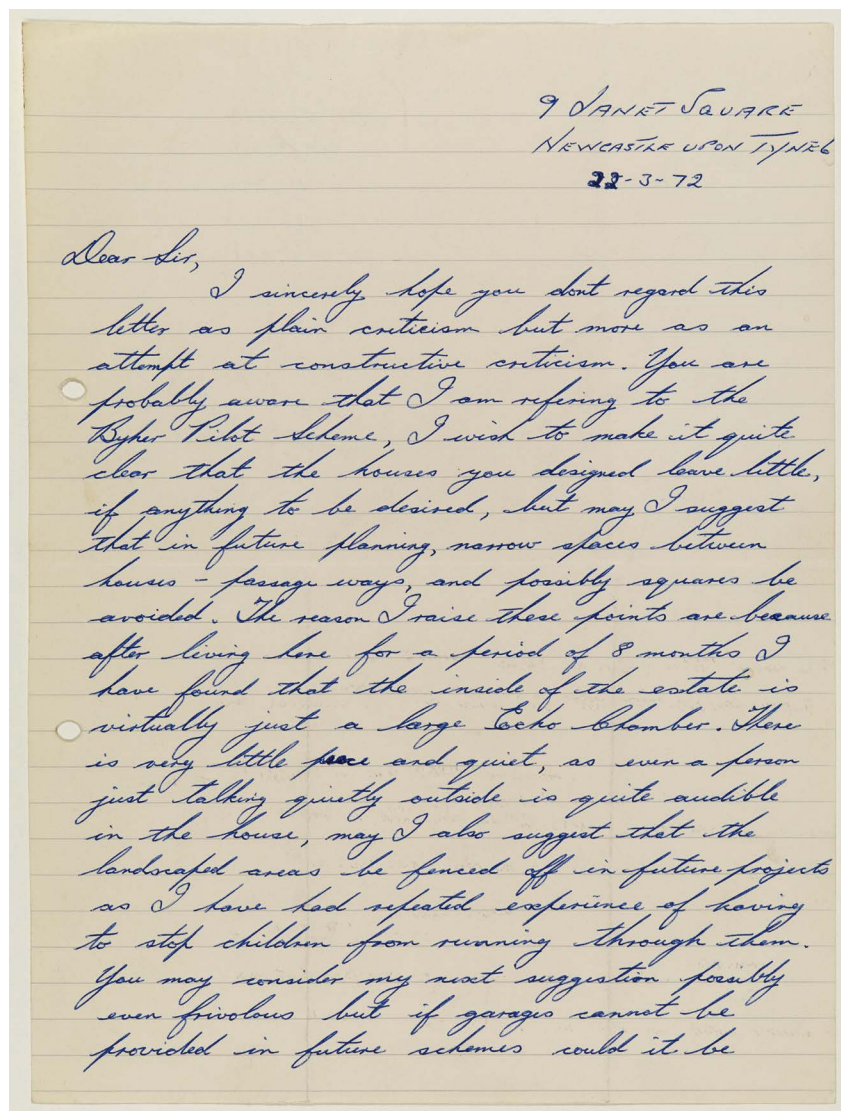 9 JANET SQUARE
NEWCASTLE UPON TYNE 6
22-3-72
Dear Sir,
I sincerely hope you dont regard this
letter as plain criticism but more as an
attempt at constructive criticism. You are
probably aware that I am refering to the
Byker Pilot Scheme, I wish to make it quite
clear that the houses you designed leave little,
if anything to be desired, but may I suggest
that in future planning, narrow spaces between
houses - passage ways, and possibly squares be
avoided. The reason I raise these points are because
after living here for a period of 8 months I
have found that the inside of the estate is
virtually just a large Echo Chamber. There
is very little peace and quiet, as even a person
just talking quietly outside is quite audible
in the house, may I also suggest that the
landscaped areas be fenced off in future projects
as I have had repeated experience of having
to stop children from running through them.
You may consider my next suggestion possibly
even frivolous but if garages cannot be
provided in future schemes could it be